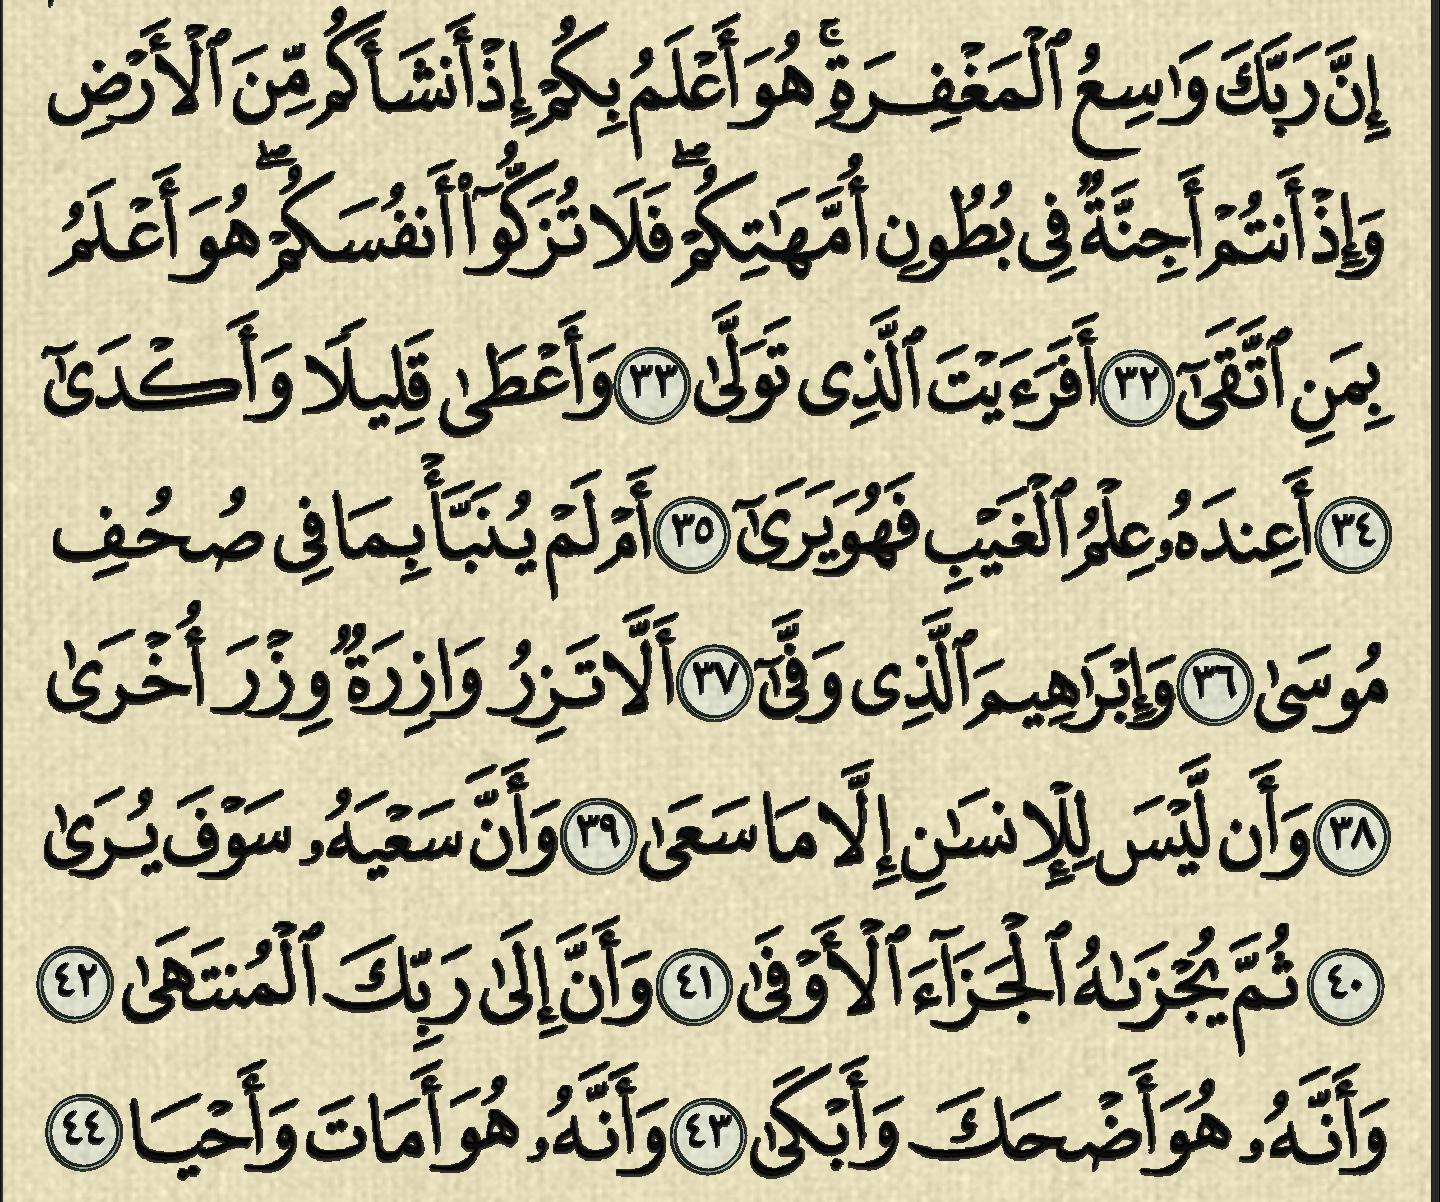 إِنَّ رَبَّكَ وَٰسِعُ ٱلْمَغْفِرَةِ ۚ هُوَ أَعْلَمُ بِكُمْ إِذْ أَنشَأَكُم مِّنَ ٱلْأَرْضِ
وَإِذْ أَنتُمْ أَجِنَّةٌ فِى بُطُونِ أُمَّهَٰتِكُمْ ۖ فَلَا تُزَكُّوٓا۟ أَنفُسَكُمْ ۖ هُوَ أَعْلَمُ
بِمَنِ ٱتَّقَىٰٓ ٣٢ أَفَرَءَيْتَ ٱلَّذِى تَوَلَّىٰ ٣٣ وَأَعْطَىٰ قَلِيلًا وَأَكْدَىٰٓ
٣٤ أَعِندَهُۥ عِلْمُ ٱلْغَيْبِ فَهُوَ يَرَىٰٓ ٣٥ أَمْ لَمْ يُنَبَّأْ بِمَا فِى صُحُفِ
مُوسَىٰ ٣٦ وَإِبْرَٰهِيمَ ٱلَّذِى وَفَّىٰٓ ٣٧ أَلَّا تَزِرُ وَازِرَةٌ وِزْرَ أُخْرَىٰ
٣٨ وَأَن لَّيْسَ لِلْإِنسَٰنِ إِلَّا مَا سَعَىٰ ٣٩ وَأَنَّ سَعْيَهُۥ سَوْفَ يُرَىٰ
٤٠ ثُمَّ يُجْزَىٰهُ ٱلْجَزَآءَ ٱلْأَوْفَىٰ ٤١ وَأَنَّ إِلَىٰ رَبِّكَ ٱلْمُنتَهَىٰ ٤٢
وَأَنَّهُۥ هُوَ أَضْحَكَ وَأَبْكَىٰ ٤٣ وَأَنَّهُۥ هُوَ أَمَاتَ وَأَحْيَا ٤٤